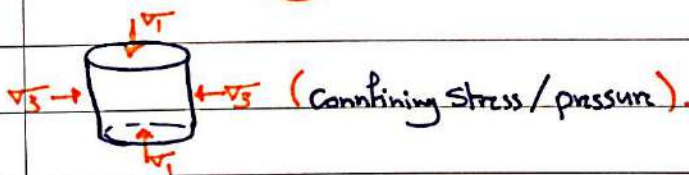 σ1
σ3 → ← σ3 (Connfining stress/pressure).
σ1